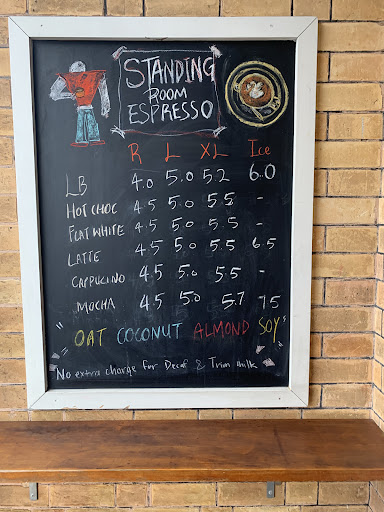 STANDING
ROOM
ESPRESSO
R L XL Ice
LB 4.0 5.0 5.2 6.0
HOT CHOC 4.5 5.0 5.5 -
FLAT WHITE 4.5 5.0 5.5 -
LATTE 4.5 5.0 5.5 6.5
CAPPUCINO 4.5 5.0 5.5 -
MOCHA 4.5 5.0 5.7 7.5
"OAT COCONUT ALMOND SOY"
"No extra charge for Decaf & Trim milk"